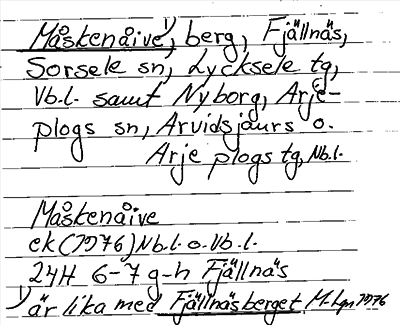 Måskenåive¹⁾, berg, Fjällnäs,
Sorsele sn, Lycksele tg,
Vb.l. samt Nyborg, Arje-
plogs sn, Arvidsjaurs o.
Arjeplogs tg, Nb.l.
Måskenåive
ek (1976) Nb.l. o. Vb.l.
24H 6-7 g-h Fjällnäs
1) är lika med Fjällnäsberget M. Lgn 1976